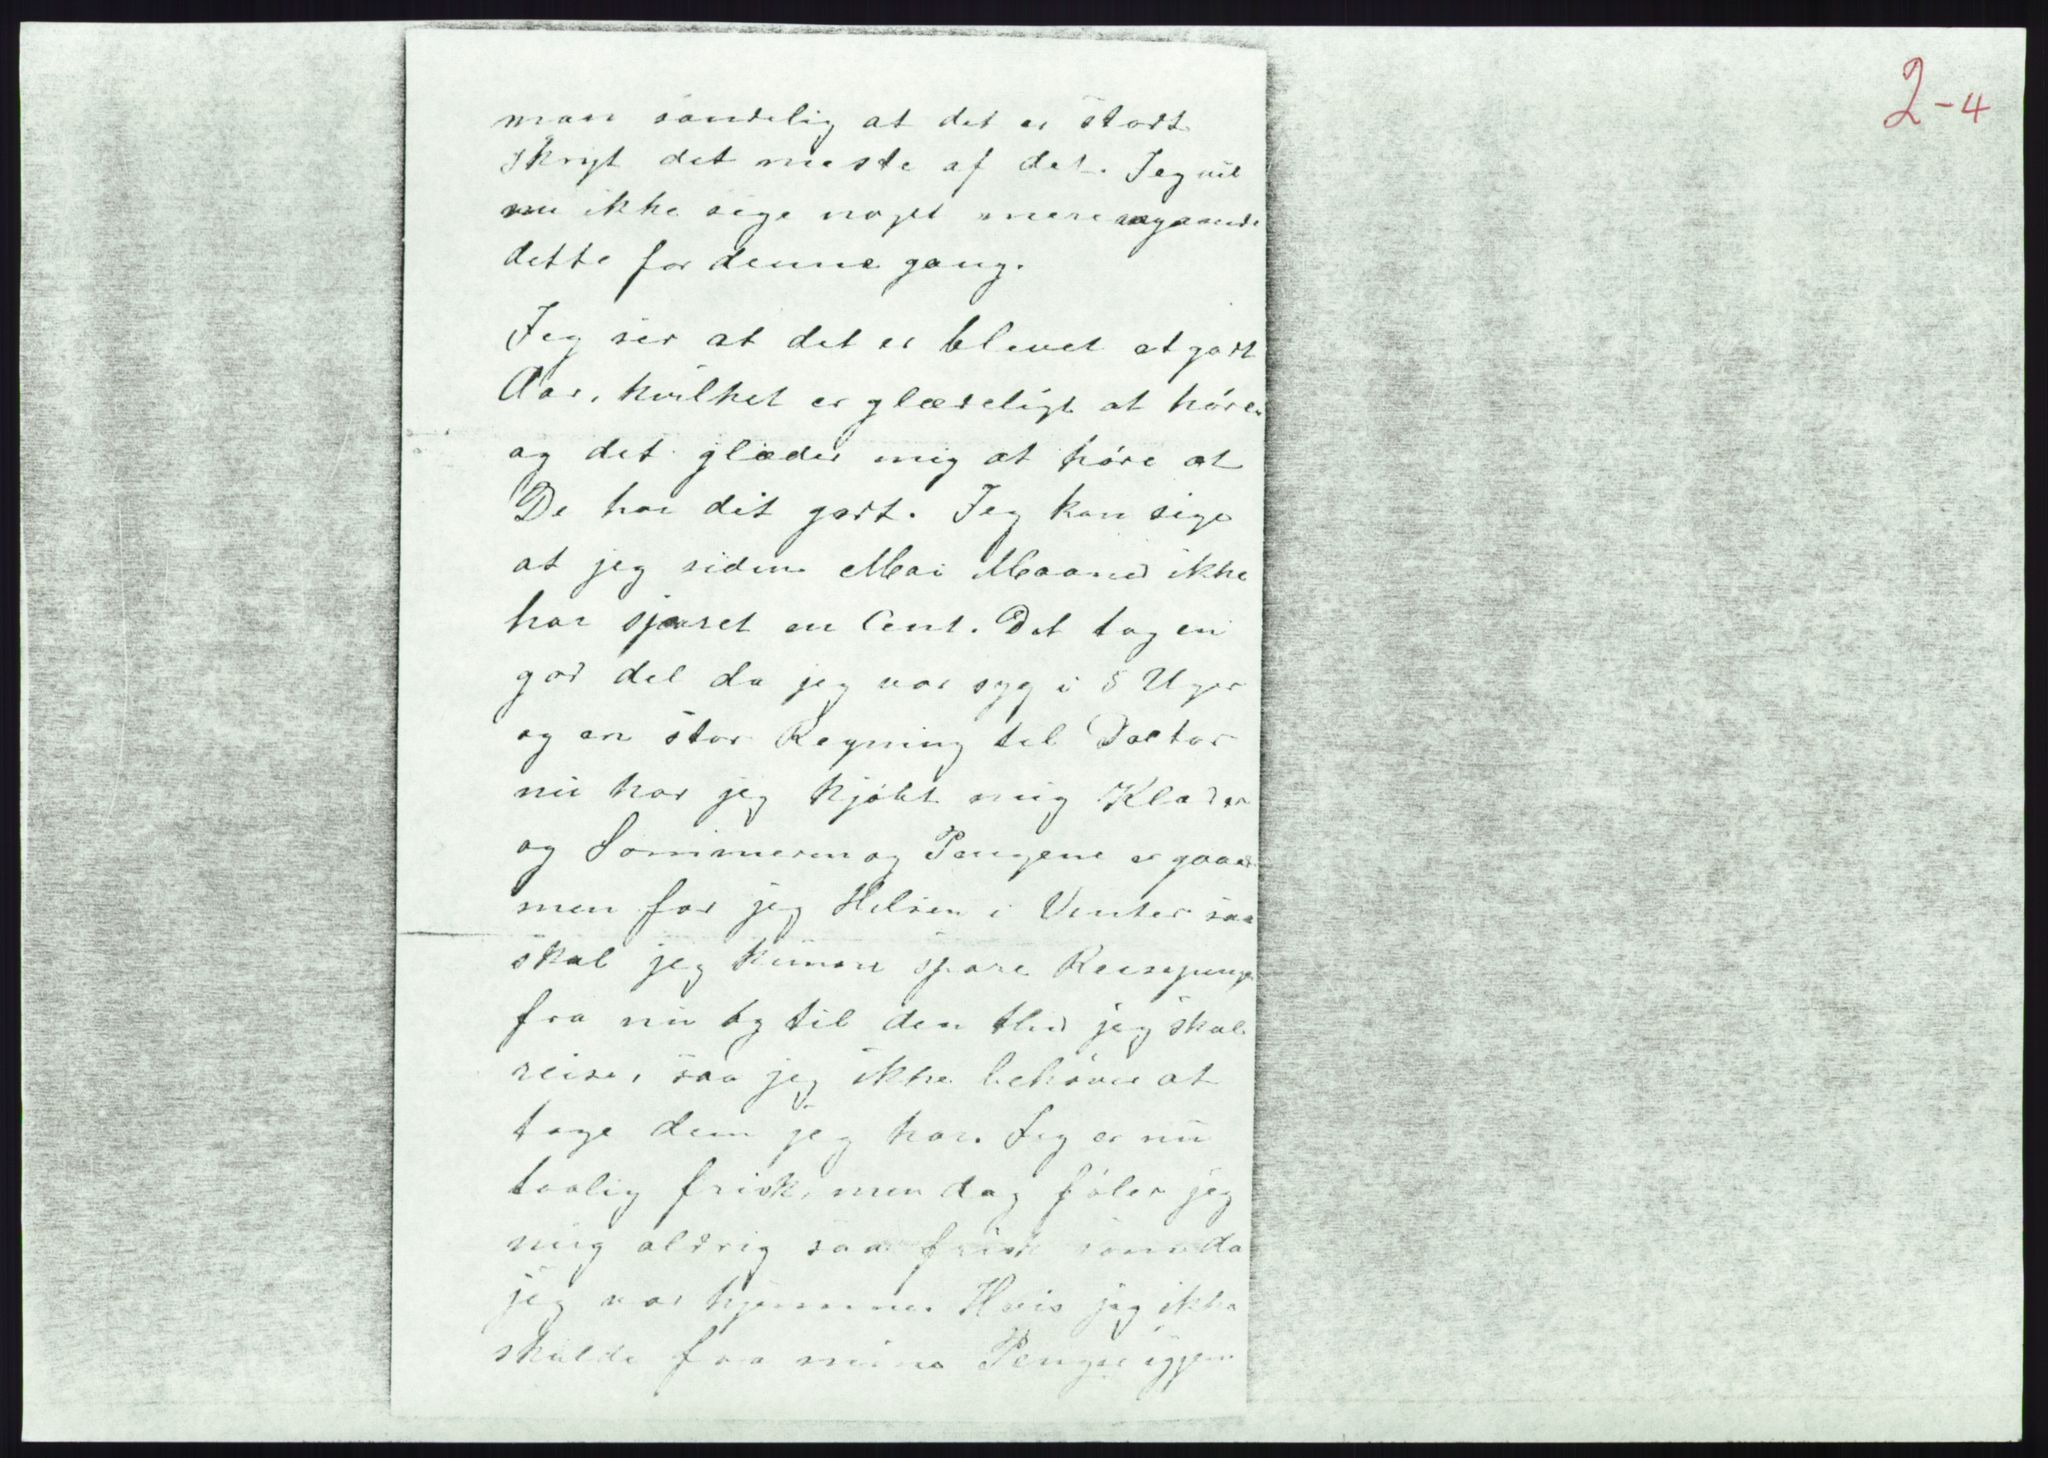 2-4
man sandelig at det er stort
skryt det meste af det. Jeg vil
nu ikke sige noget mere angaaende
dette for denne gang.
Jeg ser at det er blevet et godt
Aar, hvilket er glædeligt at høre.
og det glæder mig at høre at
De har dit godt. Jeg kan sige
at jeg siden Mai Maaned ikke
har sparet en Cent. Det tog en
god del da jeg var syg i 5 Uger
og en stor Regning til Doctor
nu har jeg kjøbt mig Klæder
og Sommeren og Pengene er gaaed
men faar jeg Helsen i Vinter saa
skal jeg kunne spare Reisepenge
fra nu og til den thid jeg skal
reise, saa jeg ikke behøver at
tage dem jeg har. Jeg er nu
taalig frisk, men dog føler jeg
mig aldrig saa frisk som da
jeg var hjemme. Hvis jeg ikke
skulde faa mine Penge igjen